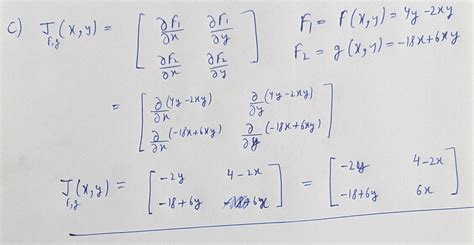 c) J_{f,g}(x,y) = [ ∂F₁/∂x ∂F₁/∂y ; ∂F₂/∂x ∂F₂/∂y ]
F₁ = f(x,y) = 4y-2xy
F₂ = g(x,y) = -18x+6xy
= [ ∂/∂x (4y-2xy) ∂/∂y (4y-2xy) ; ∂/∂x (-18x+6xy) ∂/∂y (-18x+6xy) ]
J_{f,g}(x,y) = [ -2y 4-2x ; -18+6y 6x ] = [ -2y 4-2x ; -18+6y 6x ]